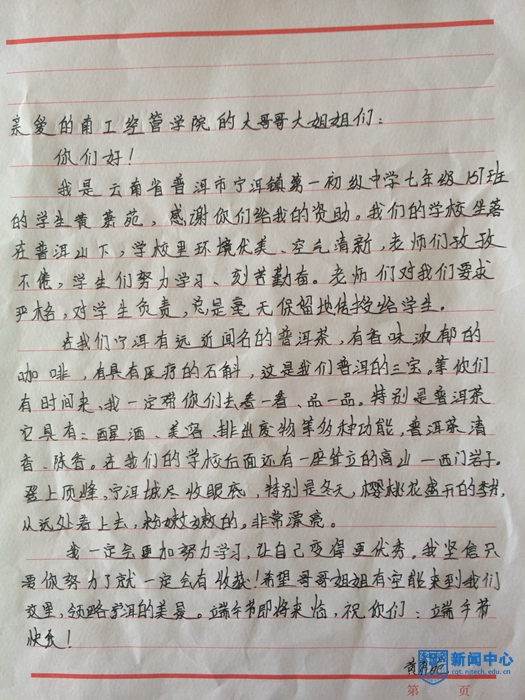 亲爱的南工经管学院的大哥哥大姐姐们：
你们好！
我是云南省普洱市宁洱镇第一初级中学七年级157班
的学生黄萧苑，感谢你们给我的资助。我们的学校坐落
在普洱山下，学校里环境优美、空气清新，老师们孜孜
不倦，学生们努力学习、刻苦勤奋。老师们对我们要求
严格，对学生负责，总是毫无保留地传授给学生。
在我们宁洱有远近闻名的普洱茶，有香味浓郁的
咖啡，有具有医疗的石斛，这是我们普洱的三宝。等你们
有时间来，我一定带你们去看一看、品一品。特别是普洱茶
它具有：醒酒、美容、排出废物等多种功能，普洱茶清
香、陈香。在我们的学校后面还有一座耸立的高山—西门岩子。
登上顶峰，宁洱城尽收眼底，特别是冬天，樱桃花盛开的季节，
从远处看上去，粉嫩嫩的。非常漂亮。
我一定会更加努力学习，让自己变得更优秀。我坚信只
要你努力了就一定会有收获！希望哥哥姐姐有空能来到我们
这里，领略宁洱的美景。端午节即将来临，祝你们：端午节
快乐！
黄萧苑
第 页
新闻中心
cqt.nitech.edu.cn